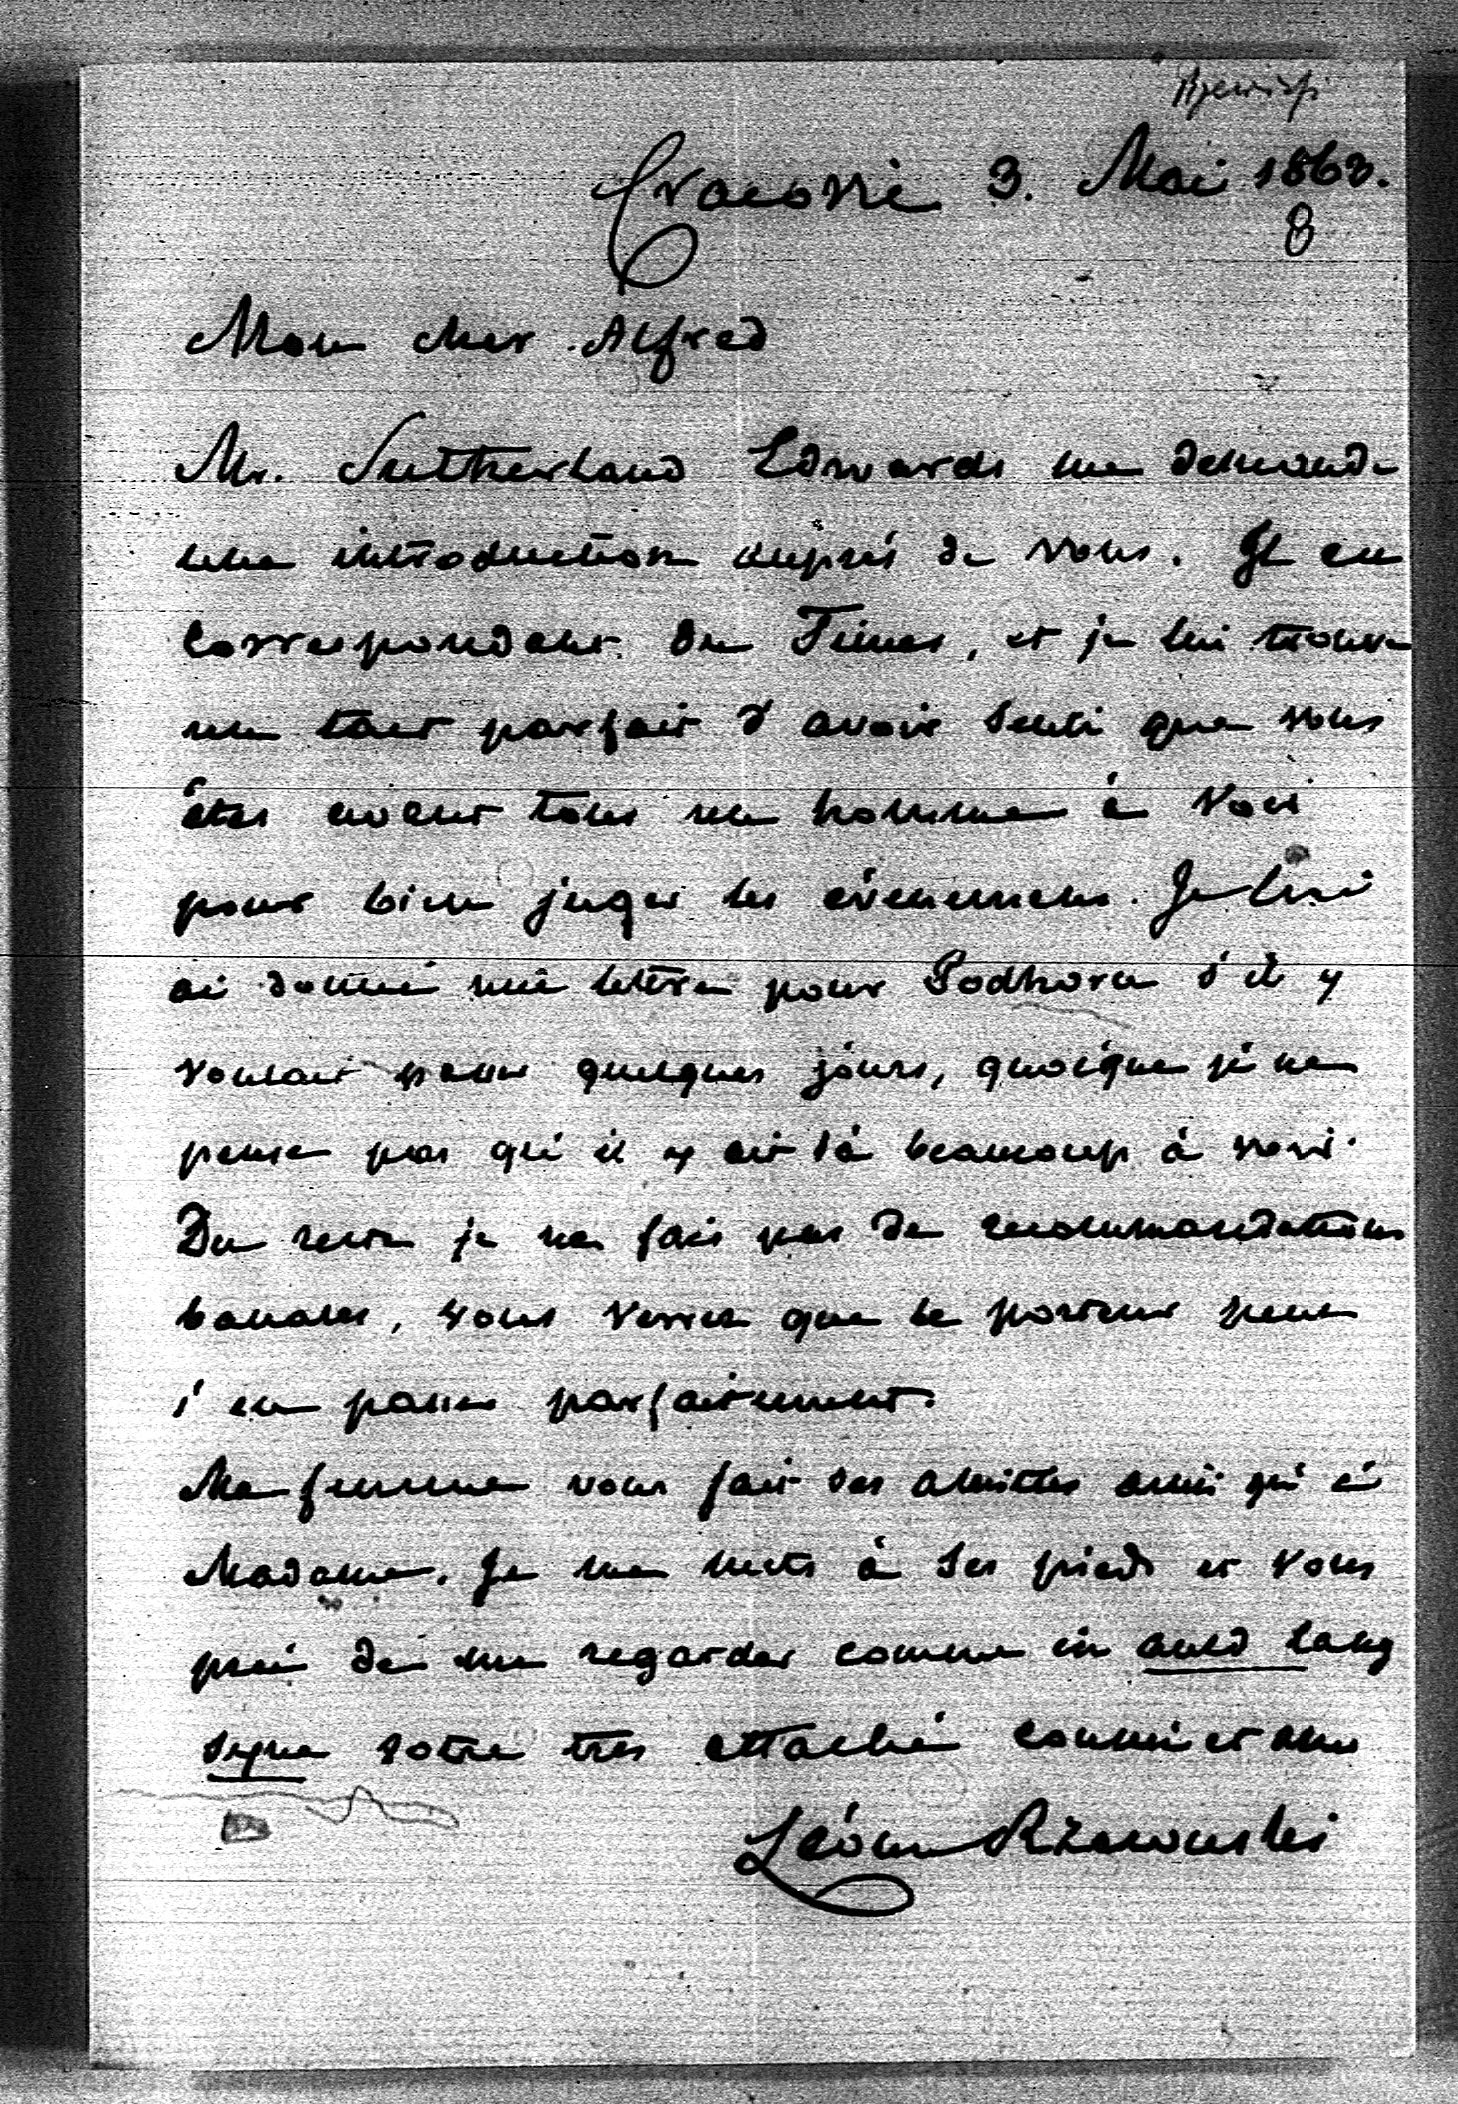 Cracovie 3. Mai 1863.
8
Mon cher Alfred
Mr. Sutherland Edwards me demande
une introduction auprès de vous. Il est
correspondant du Times, et je lui trouve
un tact parfait d'avoir senti que vous
êtes avant tous un homme à voir
pour bien juger les évenemens. Je lui
ai donné une lettre pour Podhorce s'il y
voulait passer quelques jours, quoique je ne
pense pas qu'il y ait là beaucoup à voir.
Du reste je ne fais pas de recommandations
banales, vous verrez que le porteur peut
s'en passer parfaitement.
Ma femme vous fait ses amitiés ainsi qu'à
Madame. Je me mets à ses pieds et vous
prie de me regarder comme in auld lang
syne votre très attaché cousin et ami
Léon Rzewuski